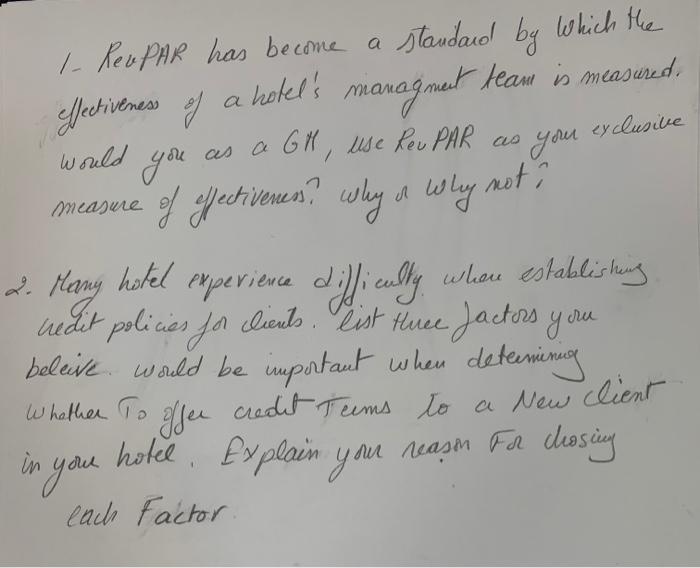 1- RevPAR has become a standard by which the
effectiveness of a hotel's managment team is measured.
Would you as a GM, use RevPAR as your exclusive
measure of effectiveness? Why or Why not?
2. Many hotel experience difficulty when establishing
credit policies for clients. list three factors you
beleive would be important when determining
Whether To offer credit Terms to a New Client
in your hotel. Explain your reason For chosing
each Factor